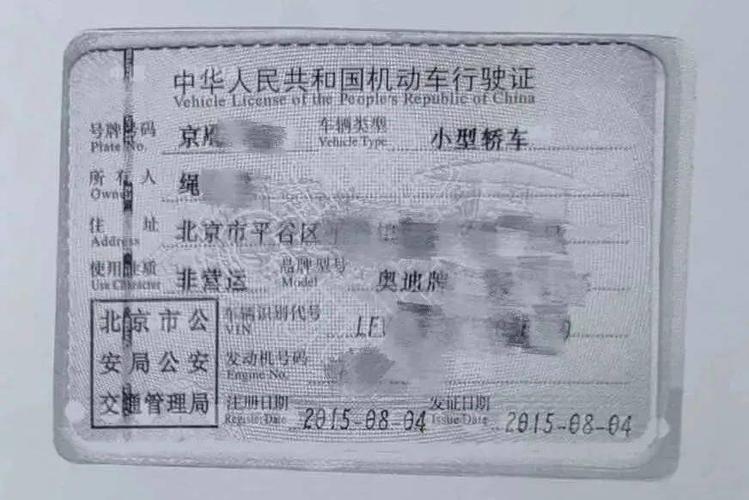 中华人民共和国机动车行驶证
Vehicle License of the People's Republic of China
号牌号码 京 车辆类型 小型轿车
Plate No. Vehicle Type
所有人 绳
Owner
住址 北京市平谷区
Address
使用性质 非营运 品牌型号 奥迪牌
Use Character Model
北京市公安局公安交通管理局
车辆识别代号 LE
VIN
发动机号码
Engine No.
注册日期 2015-08-04 发证日期 2015-08-04
Register Date Issue Date